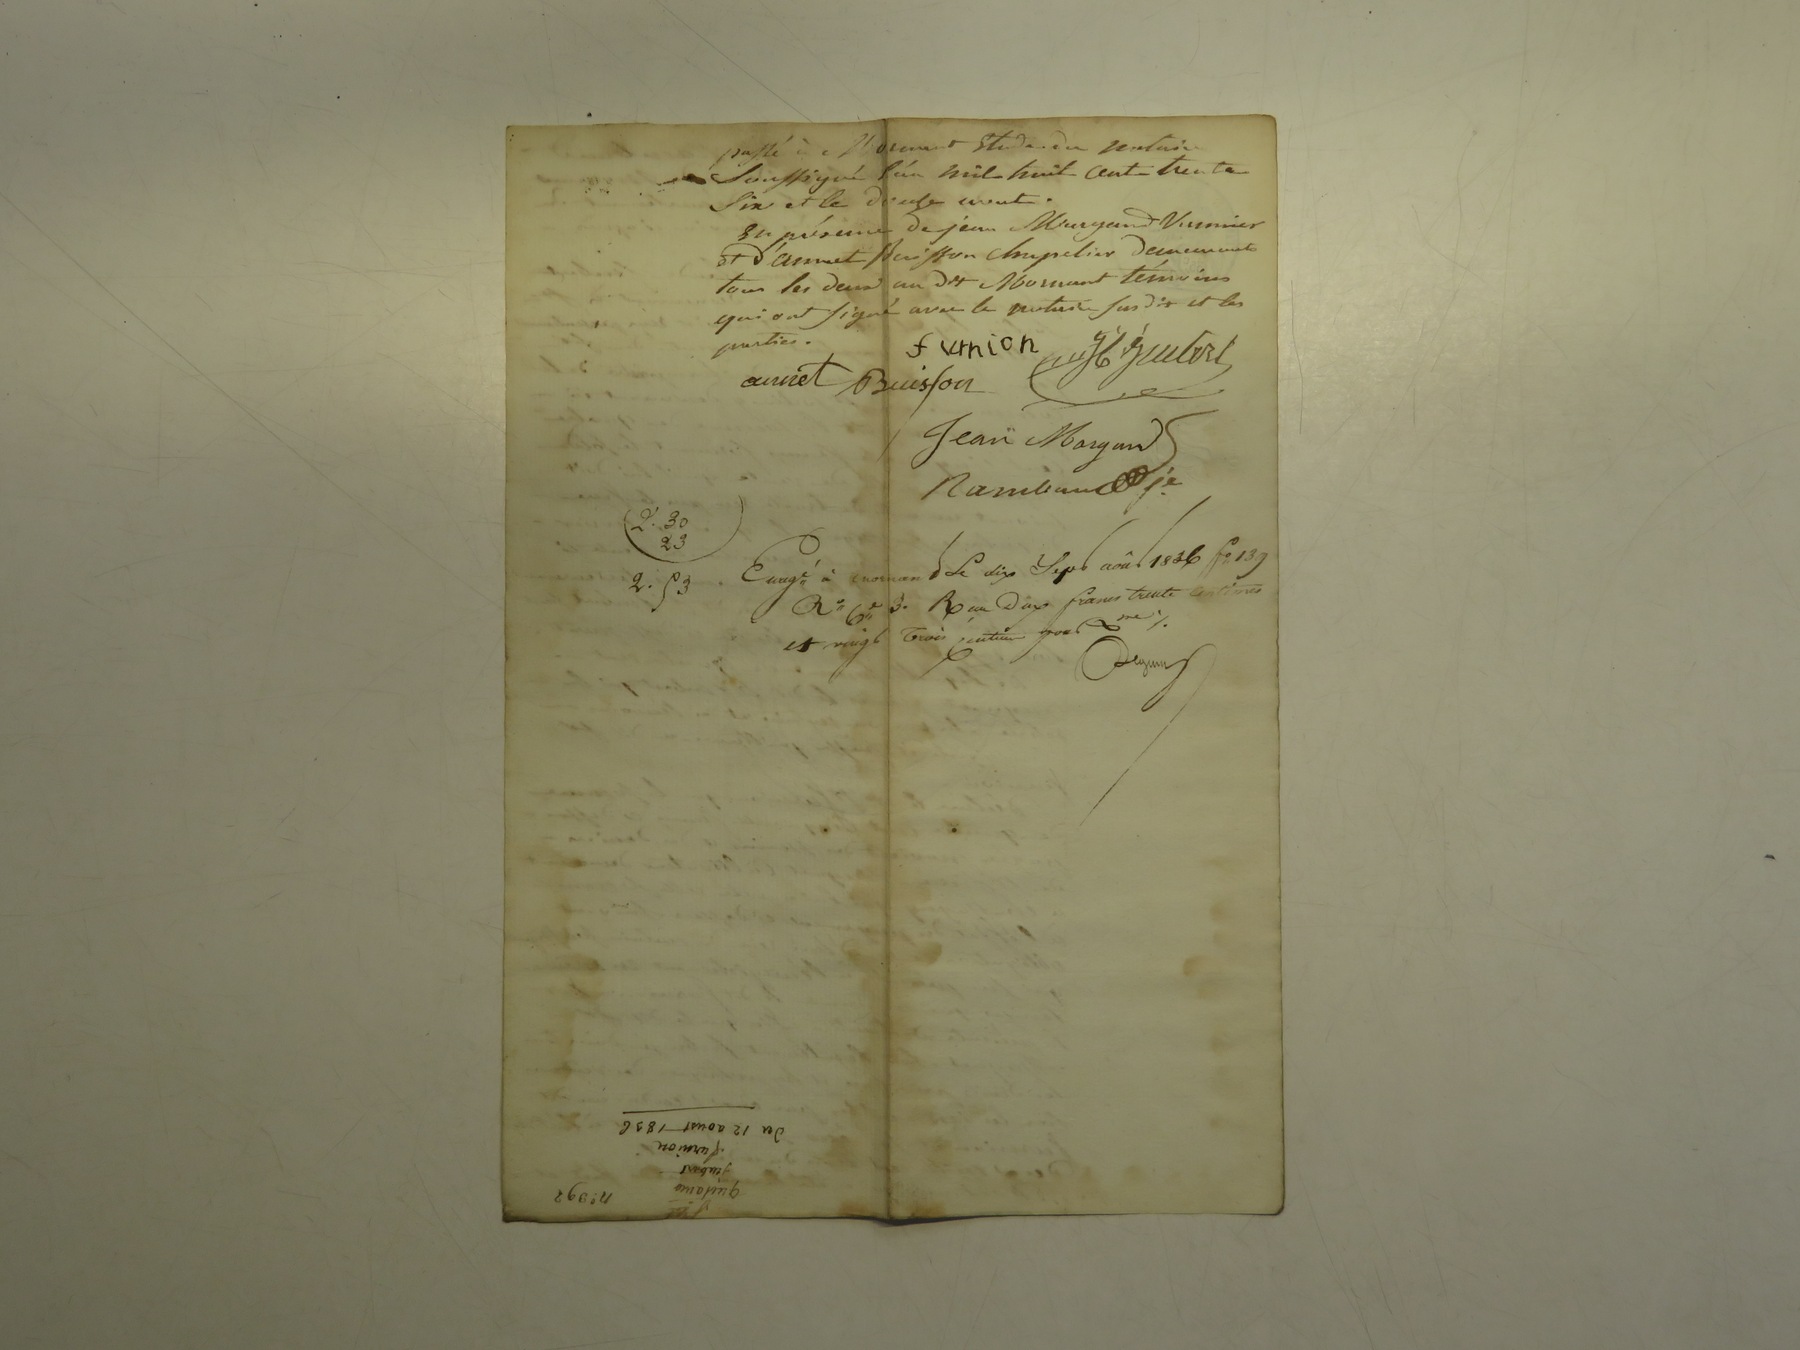 passé à Mornant Etude du notaire
Soussigné l'an mil huit cent trente
six et le douze aout.
En présence de jean Morgand Vannier
et d'annet Buisson chapelier demeurant
tous les deux au dit Mornant témoins
qui ont signé avec le notaire susdit et les
parties.
furnion
annet Buisson
Jean Morgand
Rambaud
2. 30
23
2. 53
Enregé à mornand Le dix Sept août 1836 fo 139
Ro Ce 3. Reçu Deux francs trente centimes
et vingt Trois centimes pour Dme
no 392
quittance
jiubert
furnion
du 12 aoust 1836